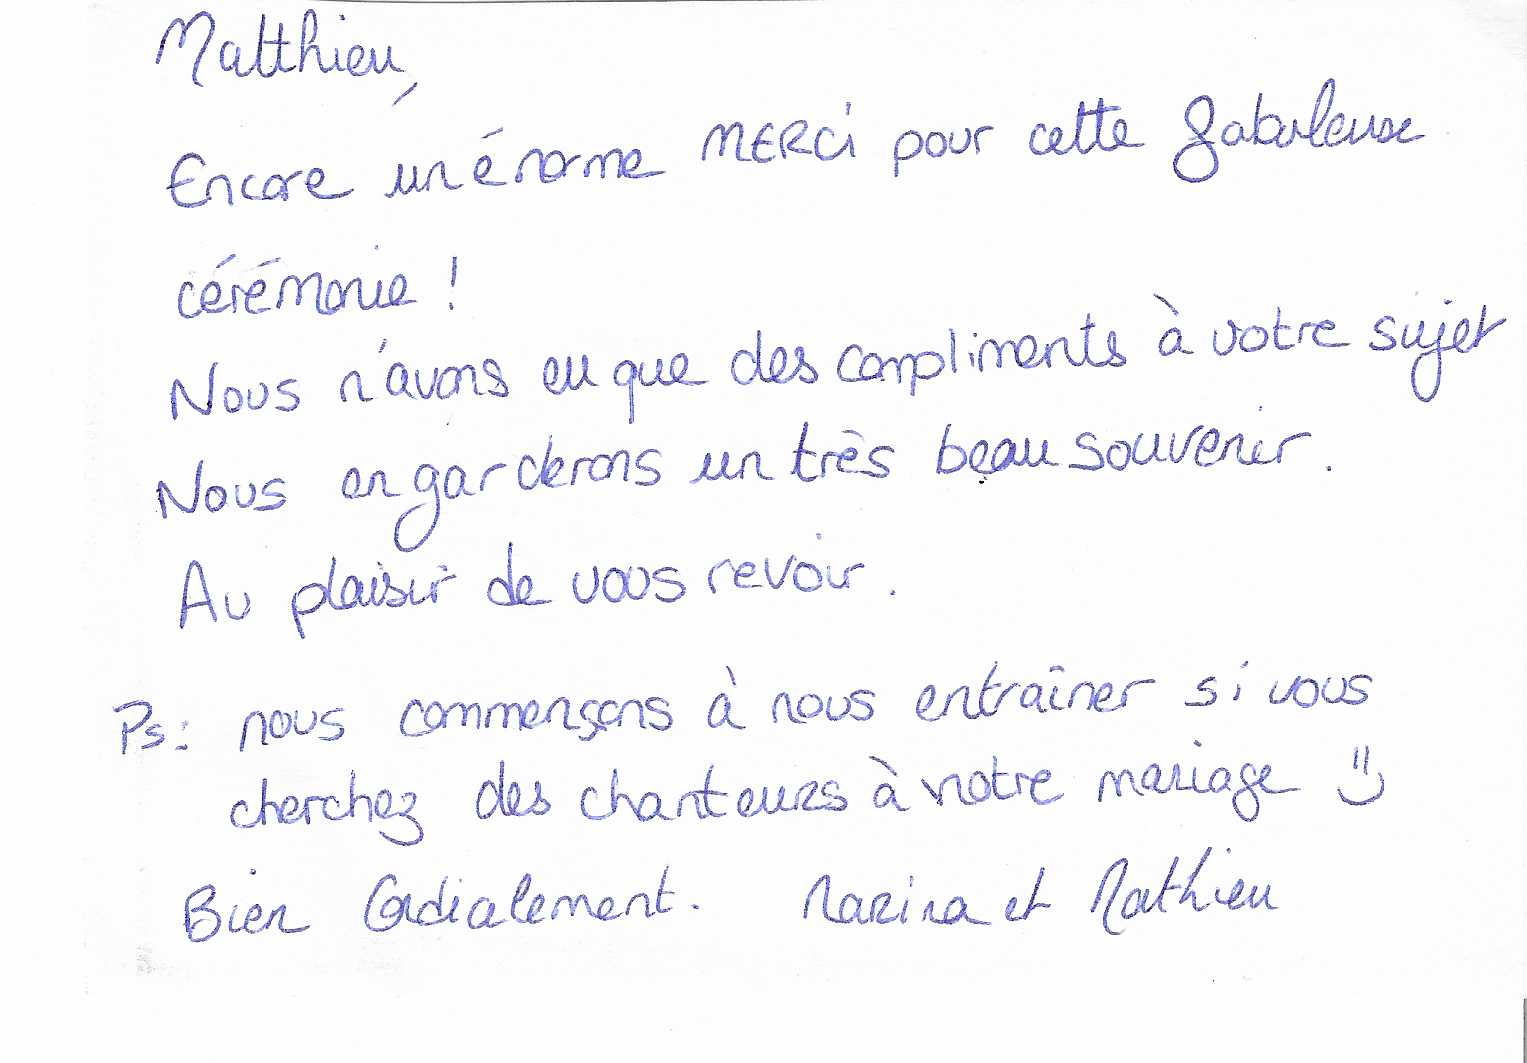 Matthieu,
Encore un énorme MERCi pour cette fabuleuse
cérémonie !
Nous n'avons eu que des compliments à votre sujet
Nous en garderons un très beau souvenir.
Au plaisir de vous revoir.
Ps: nous commençons à nous entraîner si vous
cherchez des chanteurs à votre mariage ")
Bien Cordialement. Marina et Mathieu